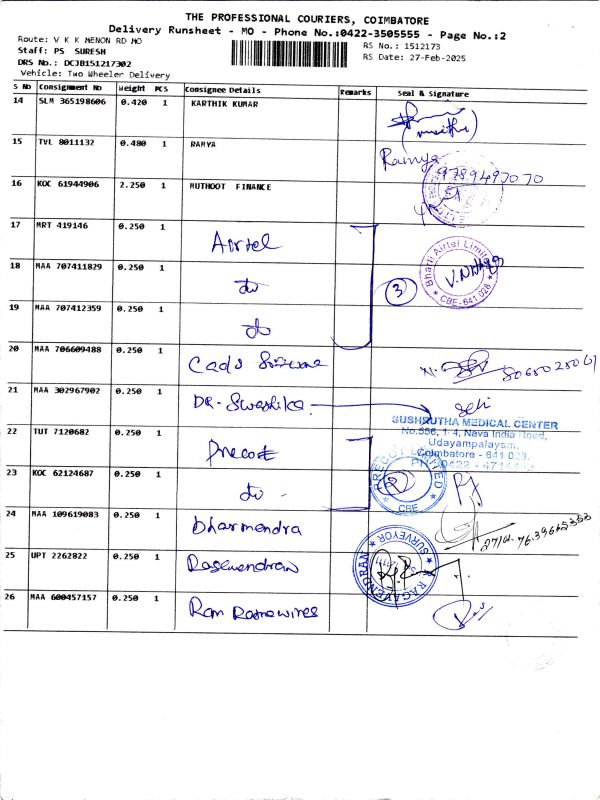 THE PROFESSIONAL COURIERS, COIMBATORE
Delivery Runsheet - MO - Phone No.:0422-3505555 - Page No.:2
Route: V K K MENON RD MO
RS No.: 1512173
Staff: PS SURESH
RS Date: 27-Feb-2025
DRS No.: DCJB151217302
Vehicle: Two Wheeler Delivery
S No Consignment No Weight PCS Consignee Details Remarks Seal & Signature
14 SLM 365198606 0.420 1 KARTHIK KUMAR
15 TVL 8011132 0.480 1 RAMYA Ramya
9789497070
16 KOC 61944906 2.250 1 MUTHOOT FINANCE
17 MRT 419146 0.250 1 Airtel
Bharti Airtel Limited
CBE-641 028
18 MAA 707411829 0.250 1 do
3
19 MAA 707412359 0.250 1 do
20 MAA 706609488 0.250 1
21 MAA 302967902 0.250 1 DR. Swashika
SUSHRUTHA MEDICAL CENTER
No.556, 1-4, Nava India Road,
Udayampalayam,
Coimbatore - 641 028.
22 TUT 7120682 0.250 1 Precot
PRECOT LIMITED
2
CBE
23 KOC 62124687 0.250 1 do
24 MAA 109619083 0.250 1 Dharmendra
25 UPT 2262822 0.250 1
SURVEYOR
RAGAVENDRAN
26 MAA 600457157 0.250 1